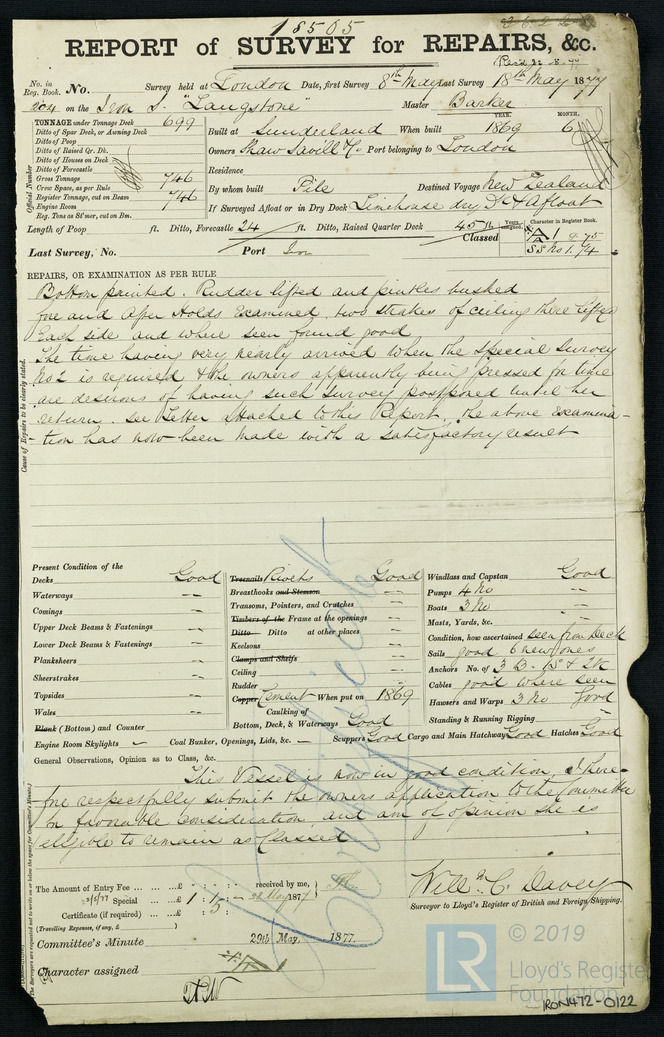 18505
REPORT of SURVEY for REPAIRS, &c.
Rec'd 22-5-77
No. in Reg. Book. No. Survey held at London Date, first Survey 8th May Last Survey 18th May 1877
204 on the Iron S. "Langstone" Master Barker
TONNAGE under Tonnage Deck 699
Ditto of Spar Deck, or Awning Deck
Ditto of Poop
Ditto of Raised Qr. Dk.
Ditto of Houses on Deck
Ditto of Forecastle
Gross Tonnage 746
Crew Space, as per Rule
Register Tonnage, cut on Beam 746
Engine Room
Reg. Tons as Ss'mer, cut on Bm.
Official Number
YEAR. MONTH.
Built at Sunderland When built 1869 6
Owners Shaw Savill & Co. Port belonging to London
Residence
By whom built Pile Destined Voyage New Zealand
If Surveyed Afloat or in Dry Dock Limehouse dry Dk & Afloat
Length of Poop ft. Ditto, Forecastle 24 ft. Ditto, Raised Quarter Deck 45 ft
Years assigned. Character in Register Book.
Classed A 1 9.75
SS No 1. 74
Last Survey, No. Port Iron
REPAIRS, OR EXAMINATION AS PER RULE
Bottom painted. Rudder lifted and pintles bushed
fore and after Holds Examined, two strakes of ceiling there lifted
Each side and where seen found good
The time having very nearly arrived when the Special Survey
No 2 is required & the owners apparently being pressed for time
are desirous of having such Survey postponed until her
return. See Letter attached to this Report, the above examina-
-tion has now been made with a satisfactory result
Cause of Repairs to be clearly stated.
Present Condition of the
Decks Good
Waterways "
Comings "
Upper Deck Beams & Fastenings "
Lower Deck Beams & Fastenings "
Planksheers "
Sheerstrakes "
Topsides "
Wales "
Plank (Bottom) and Counter "
Engine Room Skylights –
Treenails Rivets Good
Breasthooks and Stemson "
Transoms, Pointers, and Crutches "
Timbers of the Frame at the openings "
Ditto Ditto at other places "
Keelsons "
Clamps and Shelfs "
Ceiling "
Rudder "
Copper Cement When put on 1869
Caulking of
Bottom, Deck, & Waterways Good
Coal Bunker, Openings, Lids, &c. – Scuppers Good Cargo and Main Hatchway Good Hatches Good
Windlass and Capstan Good
Pumps 4 No "
Boats 3 No "
Masts, Yards, &c. "
Condition, how ascertained seen from Deck
Sails good 6 new ones
Anchors No. of 3 B. 1 S & 2 K
Cables good where seen
Hawsers and Warps 3 No Good
Standing & Running Rigging "
General Observations, Opinion as to Class, &c.
This Vessel is now in good condition. I there-
fore respectfully submit the owners application to the Committee
for favorable consideration, and am of opinion she is
eligible to remain as Classed
The Amount of Entry Fee ... ... ... £ : : received by me,
22/5/77 Special ... ... £ 1 : 5 : – 22 May 1877
Certificate (if required) ... £ : :
(Travelling Expenses, if any, £ )
Willm C. Davey
Surveyor to Lloyd's Register of British and Foreign Shipping.
Committee's Minute 29th May, 1877.
Character assigned A 1
© 2019
LR
Lloyd's Register
Foundation
IRON472-0122